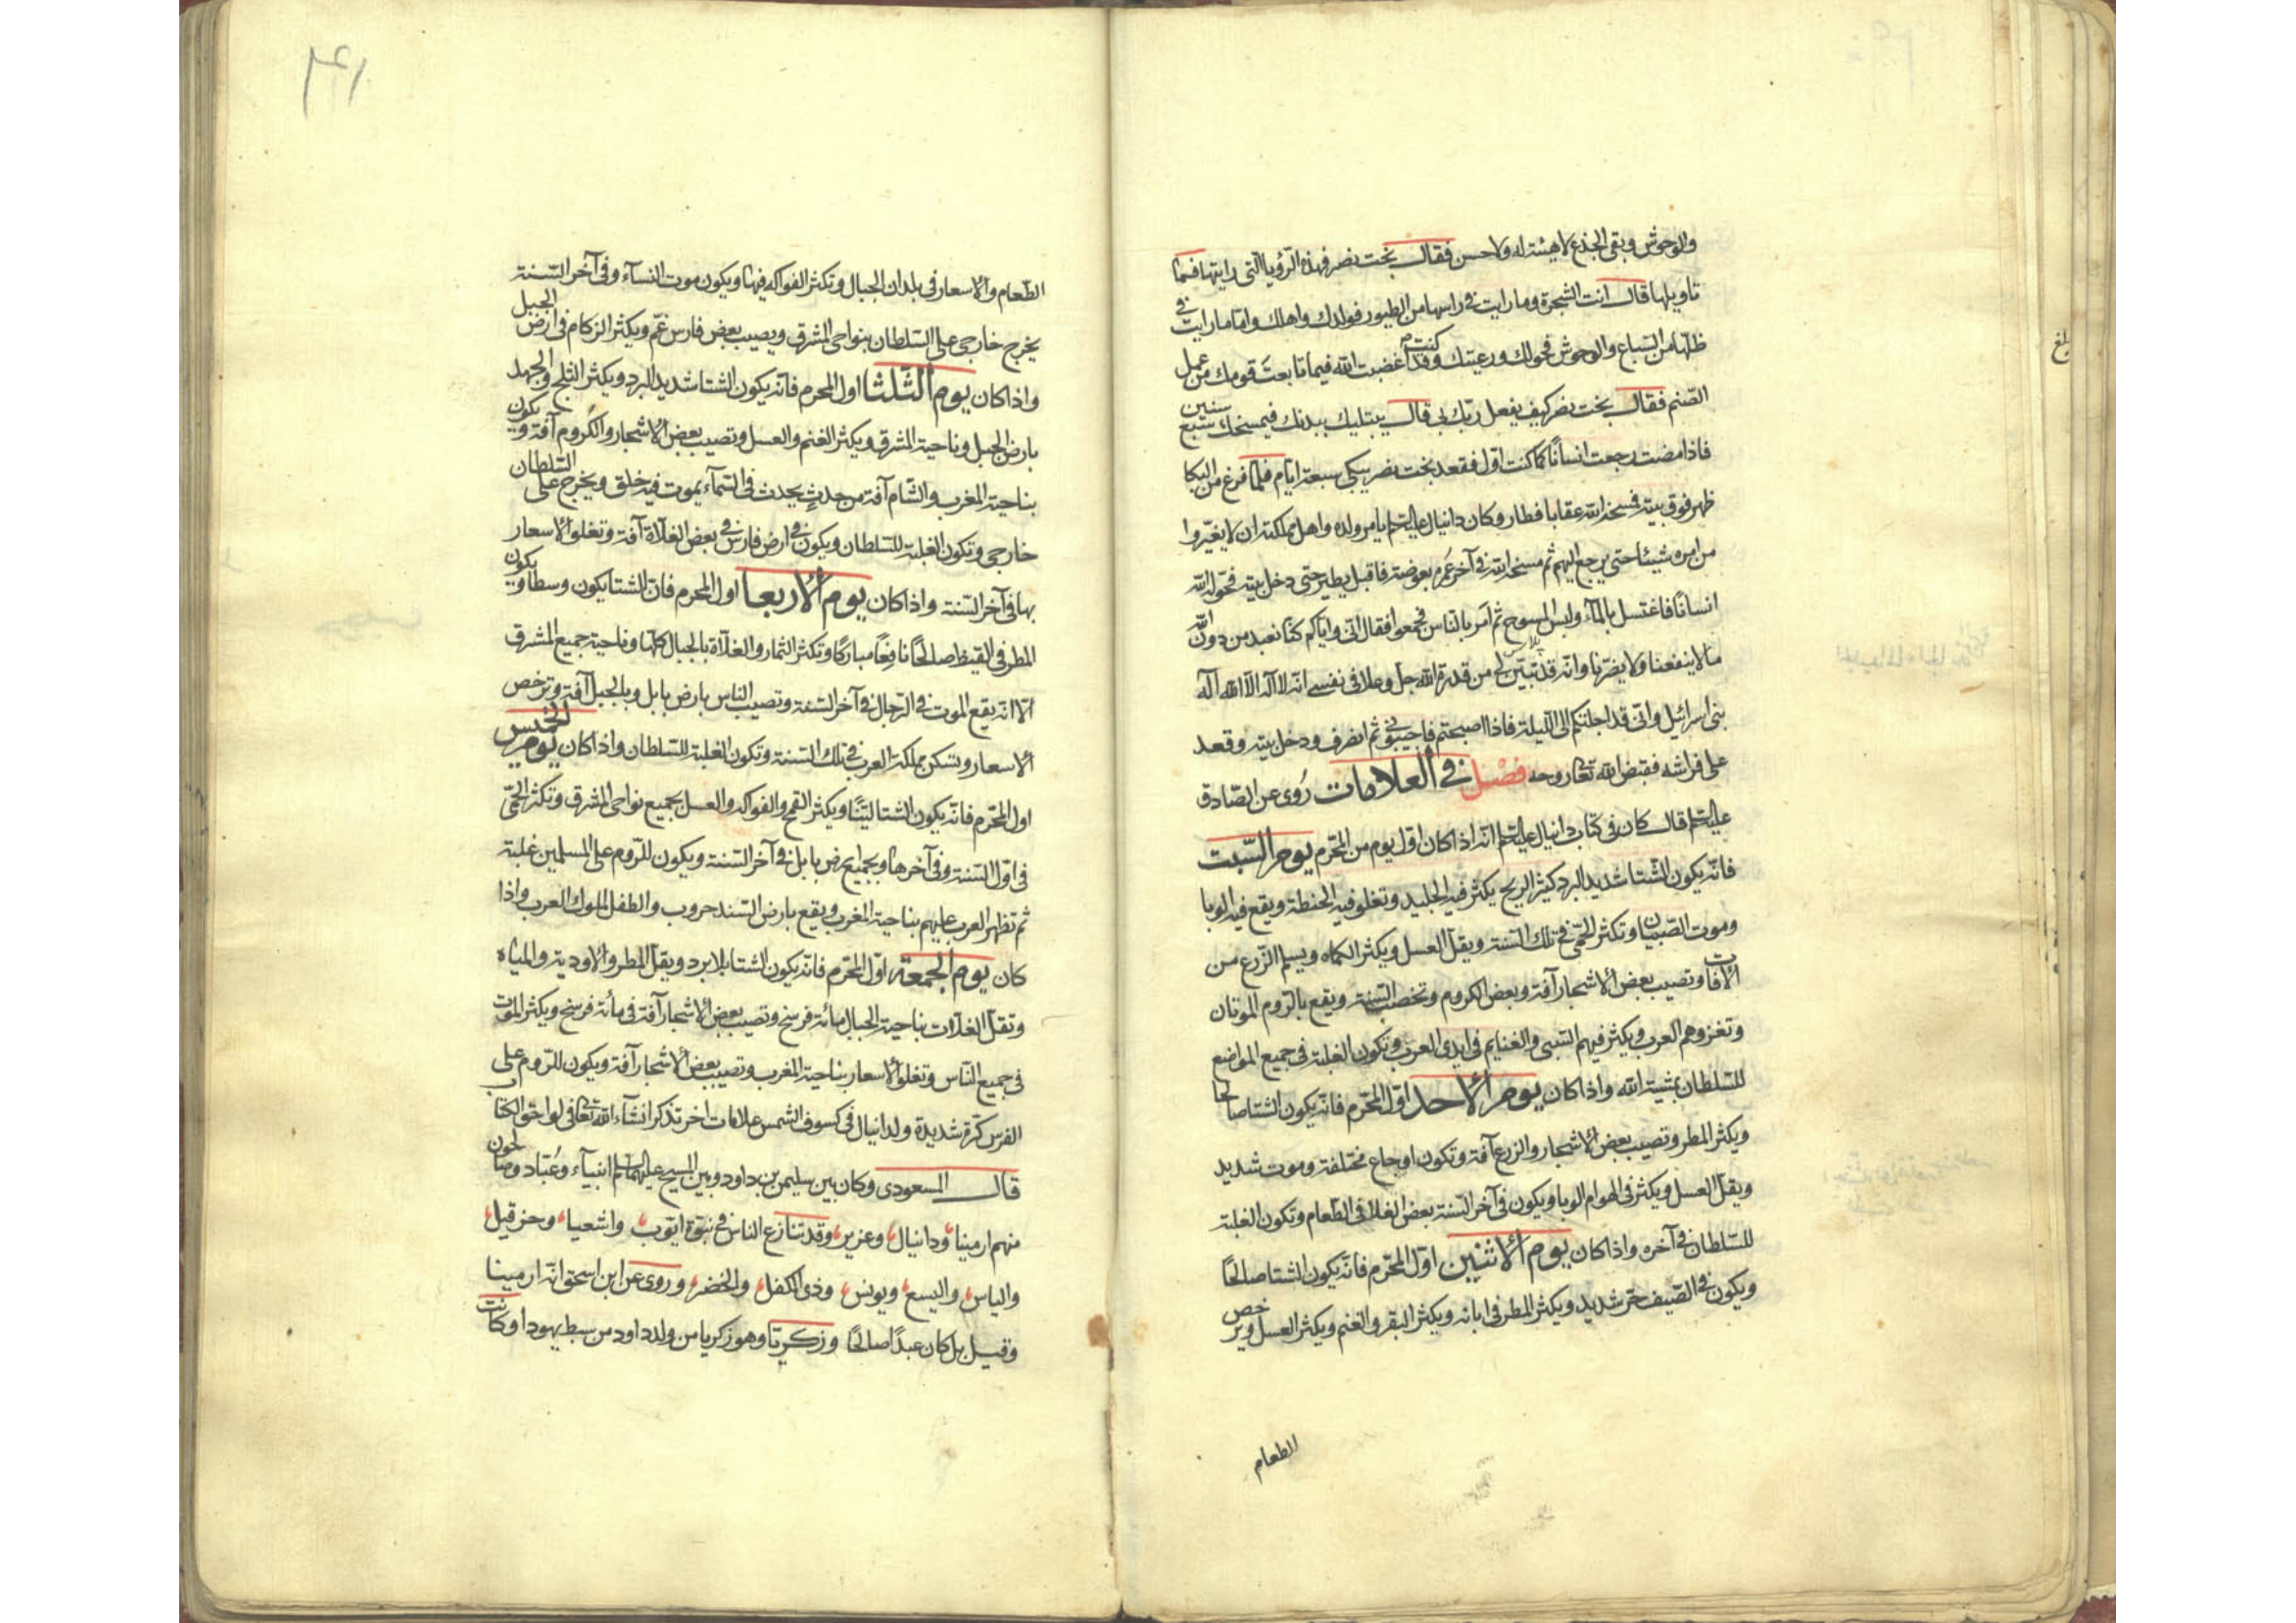 والوحوش وبقى الجذع لا هيئة له ولا حسن فقال بخت نصر فهذه الرؤيا التى رايتها فما
تاويلها قال انت الشجرة وما رايت فى راسها من الطيور فولدك واهلك واما ما رايت فى
ظلها من السباع والوحوش فخولك ورعيتك وكنت قد اغضبت الله فيما تابعت قومك من عمل
الصنم فقال بخت نصر كيف يفعل ربك بى قال يبتليك ببدنك فيمسخك سبع سنين
فاذا مضت رجعت انسانًا كما كنت اول فقعد بخت نصر يبكى سبعة ايام فلما فرغ من البكا
ظهر فوق بيته فمسخه الله عقابا فطار وكان دانيال عليه السلم يامر ولده واهل مملكته ان لا يغيروا
من امره شيئا حتى يرجع اليهم ثم مسخه الله فى آخر عمره بعوضة فاقبل يطير حتى دخل بيته فحوله الله
انسانًا فاغتسل بالمآء ولبس المسوح ثم امر بالناس فجمعوا فقال انى واياكم كنا نعبد من دون الله
ما لا ينفعنا ولا يضرنا وانه قد تبين لى من قدرة الله جل وعلا فى نفسى انه لا اله الا الله اله
بنى اسرائيل وانى قد اجلتكم الى الليلة فاذا اصبحتم فاجيبونى ثم انصرف ودخل بيته وقعد
على فراشه فقبض الله تعالى روحه فصل فى العلامات روى عن الصادق
عليه السلم قال كان فى كتاب دانيال عليه السلم انه اذا كان اول يوم من المحرم يوم السبت
فانه يكون الشتا شديد البرد كثير الريح يكثر فيه الجليد وتغلو فيه الحنطة ويقع فيه الوبا
وموت الصبيان وتكثر الحمى فى تلك السنة ويقل العسل ويكثر الكماه ويسلم الزرع من
الآفات وتصيب بعض الاشجار آفة وبعض الكروم وتخصب السنة ويقع بالروم الموتان
وتغزوهم العرب ويكثر فيهم السبى والغنايم فى ايدى العرب وتكون الغلبة فى جميع المواضع
للسلطان بمشية الله واذا كان يوم الاحد اول المحرم فانه يكون الشتا صالحا
ويكثر المطر وتصيب بعض الاشجار والزرع آفة وتكون اوجاع مختلفة وموت شديد
ويقل العسل ويكثر فى الهوام الوبا ويكون فى آخر السنة بعض الغلا فى الطعام وتكون الغلبة
للسلطان فى آخره واذا كان يوم الاثنين اول المحرم فانه يكون الشتا صالحًا
ويكون فى الصيف حر شديد ويكثر المطر فى ابانه ويكثر البقر والغنم ويكثر العسل ويرخص
الطعام
الطعام والاسعار فى بلدان الجبال وتكثر الفواكه فيها ويكون موت النسآء وفى آخر السنة
يخرج خارجى على السلطان بنواحى المشرق ويصيب بعض فارس غم ويكثر الزكام فى ارض الجبل
واذا كان يوم الثلثا اول المحرم فانه يكون الشتا شديد البرد ويكثر الثلج والجهد
بارض الجبل وناحية المشرق ويكثر الغنم والعسل وتصيب بعض الاشجار والكروم آفة ويكون
بناحية المغرب والشام آفة من حدث يحدث فى السمآء يموت فيه خلق ويخرج على السلطان
خارجى وتكون الغلبة للسلطان ويكون فى ارض فارس فى بعض الغلاة آفة وتغلو الاسعار
بها فى آخر السنة واذا كان يوم الاربعا اول المحرم فان الشتا يكون وسطا ويكون
المطر فى القيظ صالحًا نافعًا مباركًا وتكثر الثمار والغلاة بالجبال كلها وناحية جميع المشرق
الا انه يقع الموت فى الرجال فى آخر السنة وتصيب الناس بارض بابل وبالجبل آفة وترخص
الاسعار وتسكن مملكة العرب فى تلك السنة وتكون الغلبة للسلطان واذا كان يوم الخميس
اول المحرم فانه يكون الشتا لينًا ويكثر القمح والفواكه والعسل بجميع نواحى المشرق وتكثر الحمى
فى اول السنة وفى آخرها وبجميع ارض بابل فى آخر السنة ويكون للروم على المسلمين غلبة
ثم تظهر العرب عليهم بناحية المغرب ويقع بارض السند حروب والظفر لملوك العرب واذا
كان يوم الجمعة اول المحرم فانه يكون الشتا بلا برد ويقل المطر والاودية والمياه
وتقل الغلات بناحية الجبال مائة فرسخ وتصيب بعض الاشجار آفة فى مائة فرسخ ويكثر الموت
فى جميع الناس وتغلو الاسعار بناحية المغرب وتصيب بعض الاشجار آفة ويكون للروم على
الفرس كرة شديدة ولدانيال فى كسوف الشمس علامات اخر تذكر انشآء الله تعالى فى لواحق الكتاب
قال المسعودى وكان بين سليمن بن داود وبين المسيح عليهما السلم انبيآء وعباد وصالحون
منهم ارمينا ودانيال وعزير وقد تنازع الناس فى نبوة ايوب واشعيا وحزقيل
والياس واليسع ويونس وذى الكفل والخضر وروى عن ابن اسحق انه ارمينا
وقيل بل كان عبدًا صالحًا وزكريا وهو زكريا من ولد داود من سبط يهودا وكانت